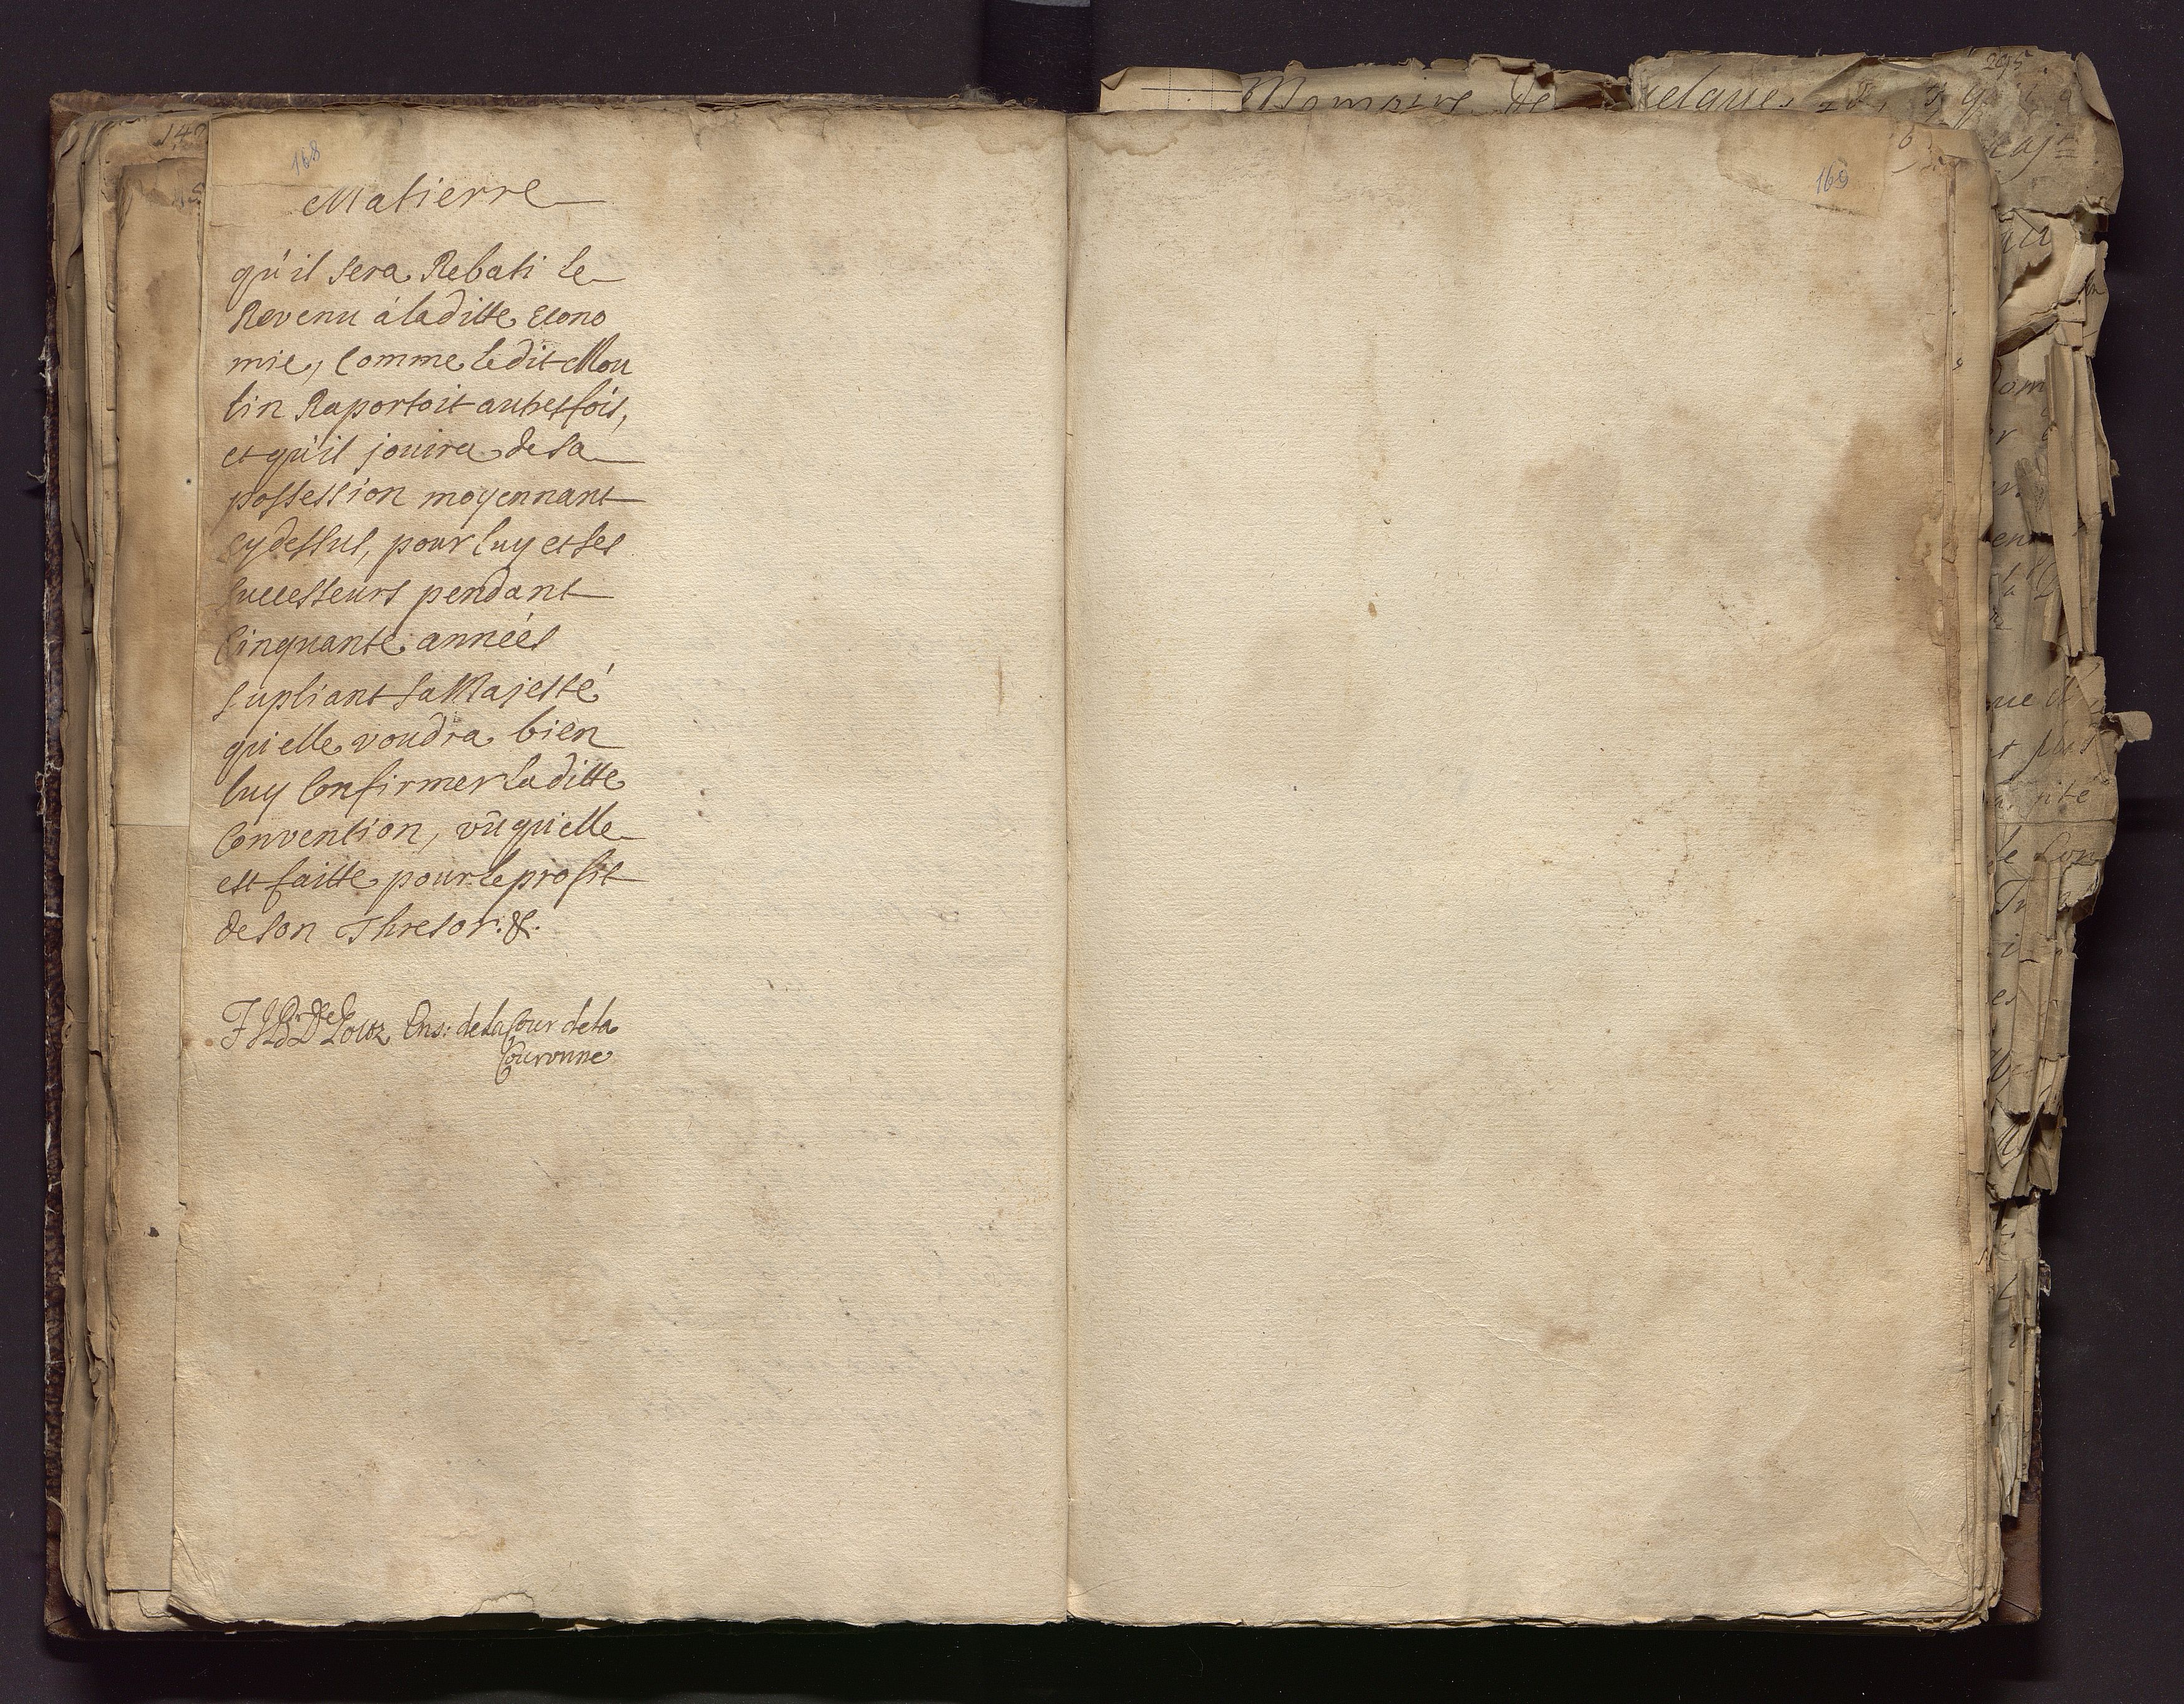 168
Matierre
qu'il sera Rebati le
Revenu à laditte Econo
mie, Comme ledit Mou
lin Raportoit autresfois,
et qu'il jouira de sa
possession moyennant
cy dessus, pour luy et ses
successeurs pendant
Cinquante années
supliant sa Majesté
qu'elle voudra bien
luy Confirmer laditte
Convention, vû qu'elle
est faitte pour le profit
de son Thresor. &.
Ens: de la Cour de la
Couronne
169
295
Memoire de